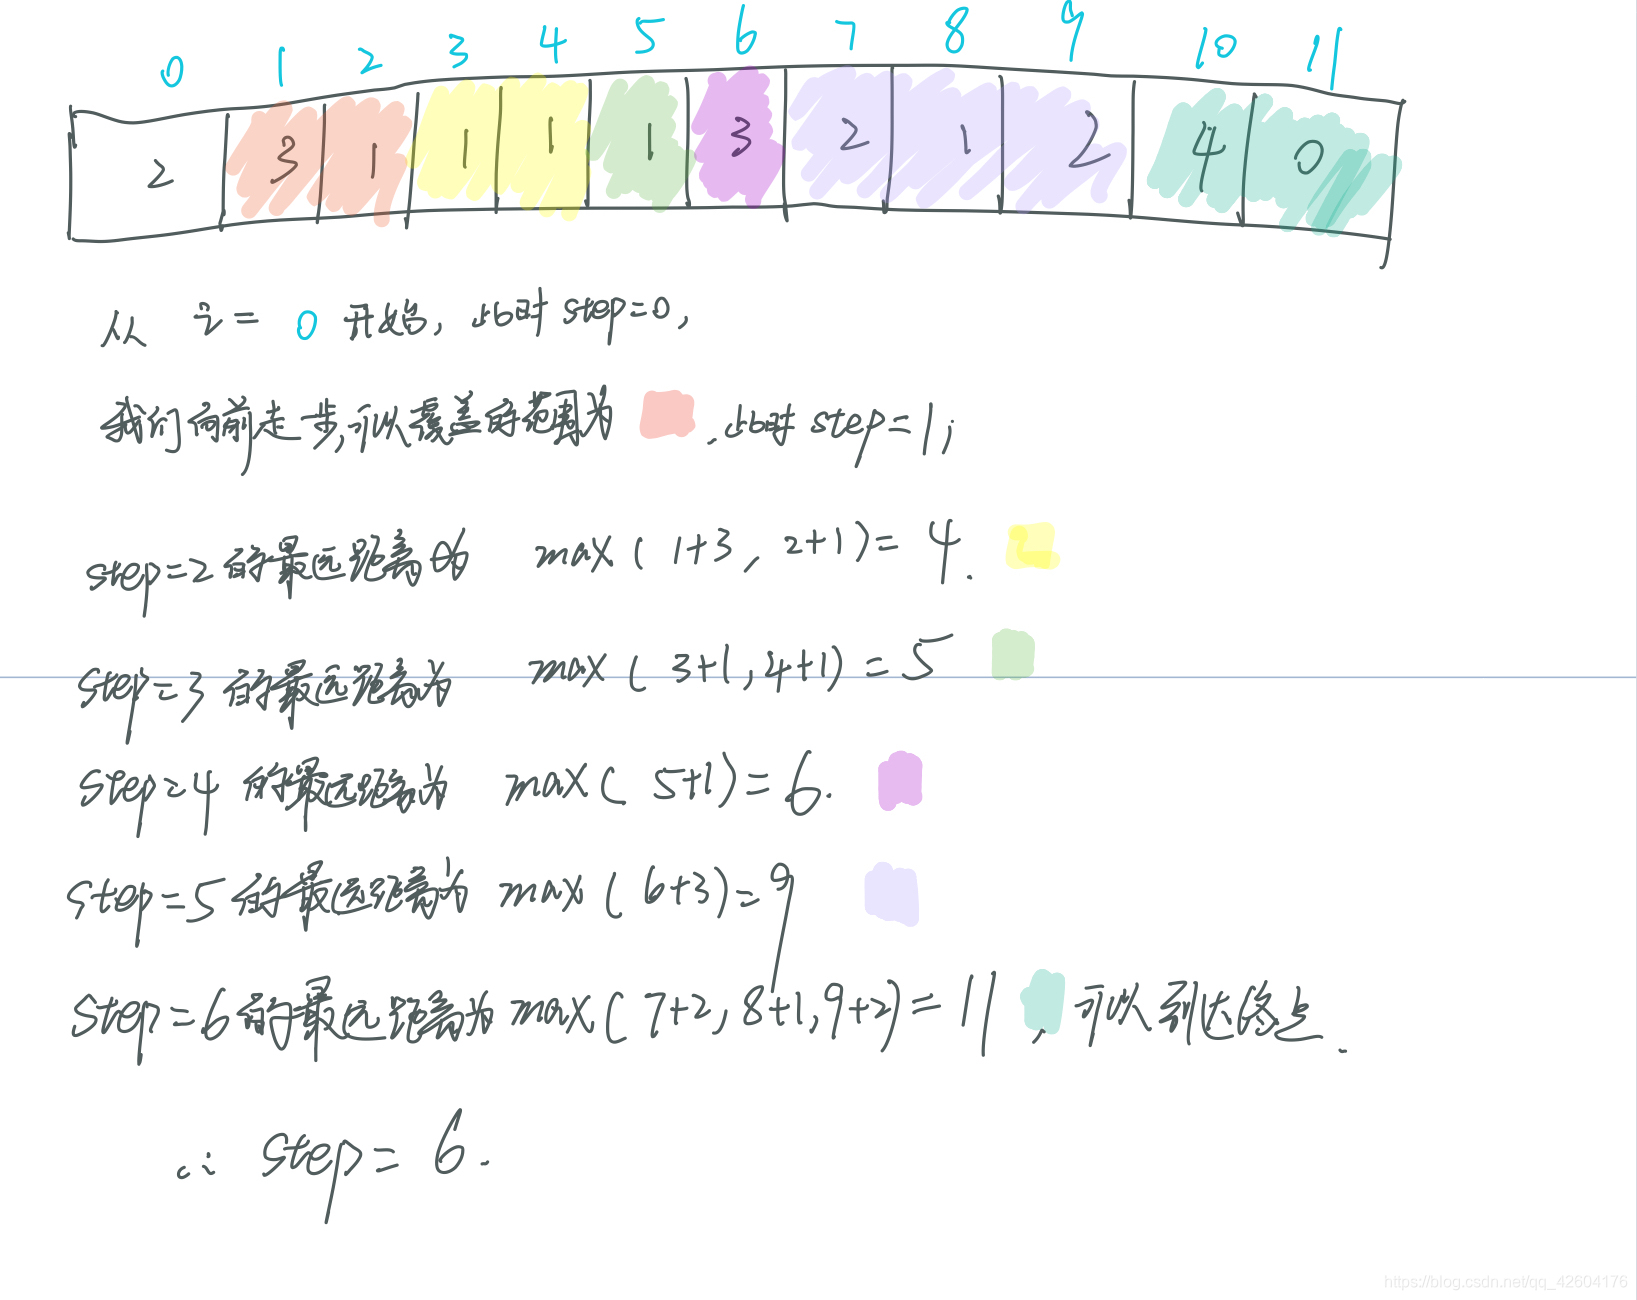 0 1 2 3 4 5 6 7 8 9 10 11
2 3 1 1 1 1 3 2 1 2 4 0
从 i= 0 开始, 此时 step=0,
我们向前走一步,可以覆盖的范围为 . 此时 step=1;
step=2 的最远距离为 max ( 1+3, 2+1)= 4.
step=3 的最远距离为 max ( 3+1,4+1) =5
step=4 的最远距离为 max( 5+1)=6.
step=5 的最远距离为 max ( 6+3)=9
step=6 的最远距离为 max( 7+2,8+1,9+2)= 11 , 可以到达终点.
∴ step= 6.
https://blog.csdn.net/qq_42604176